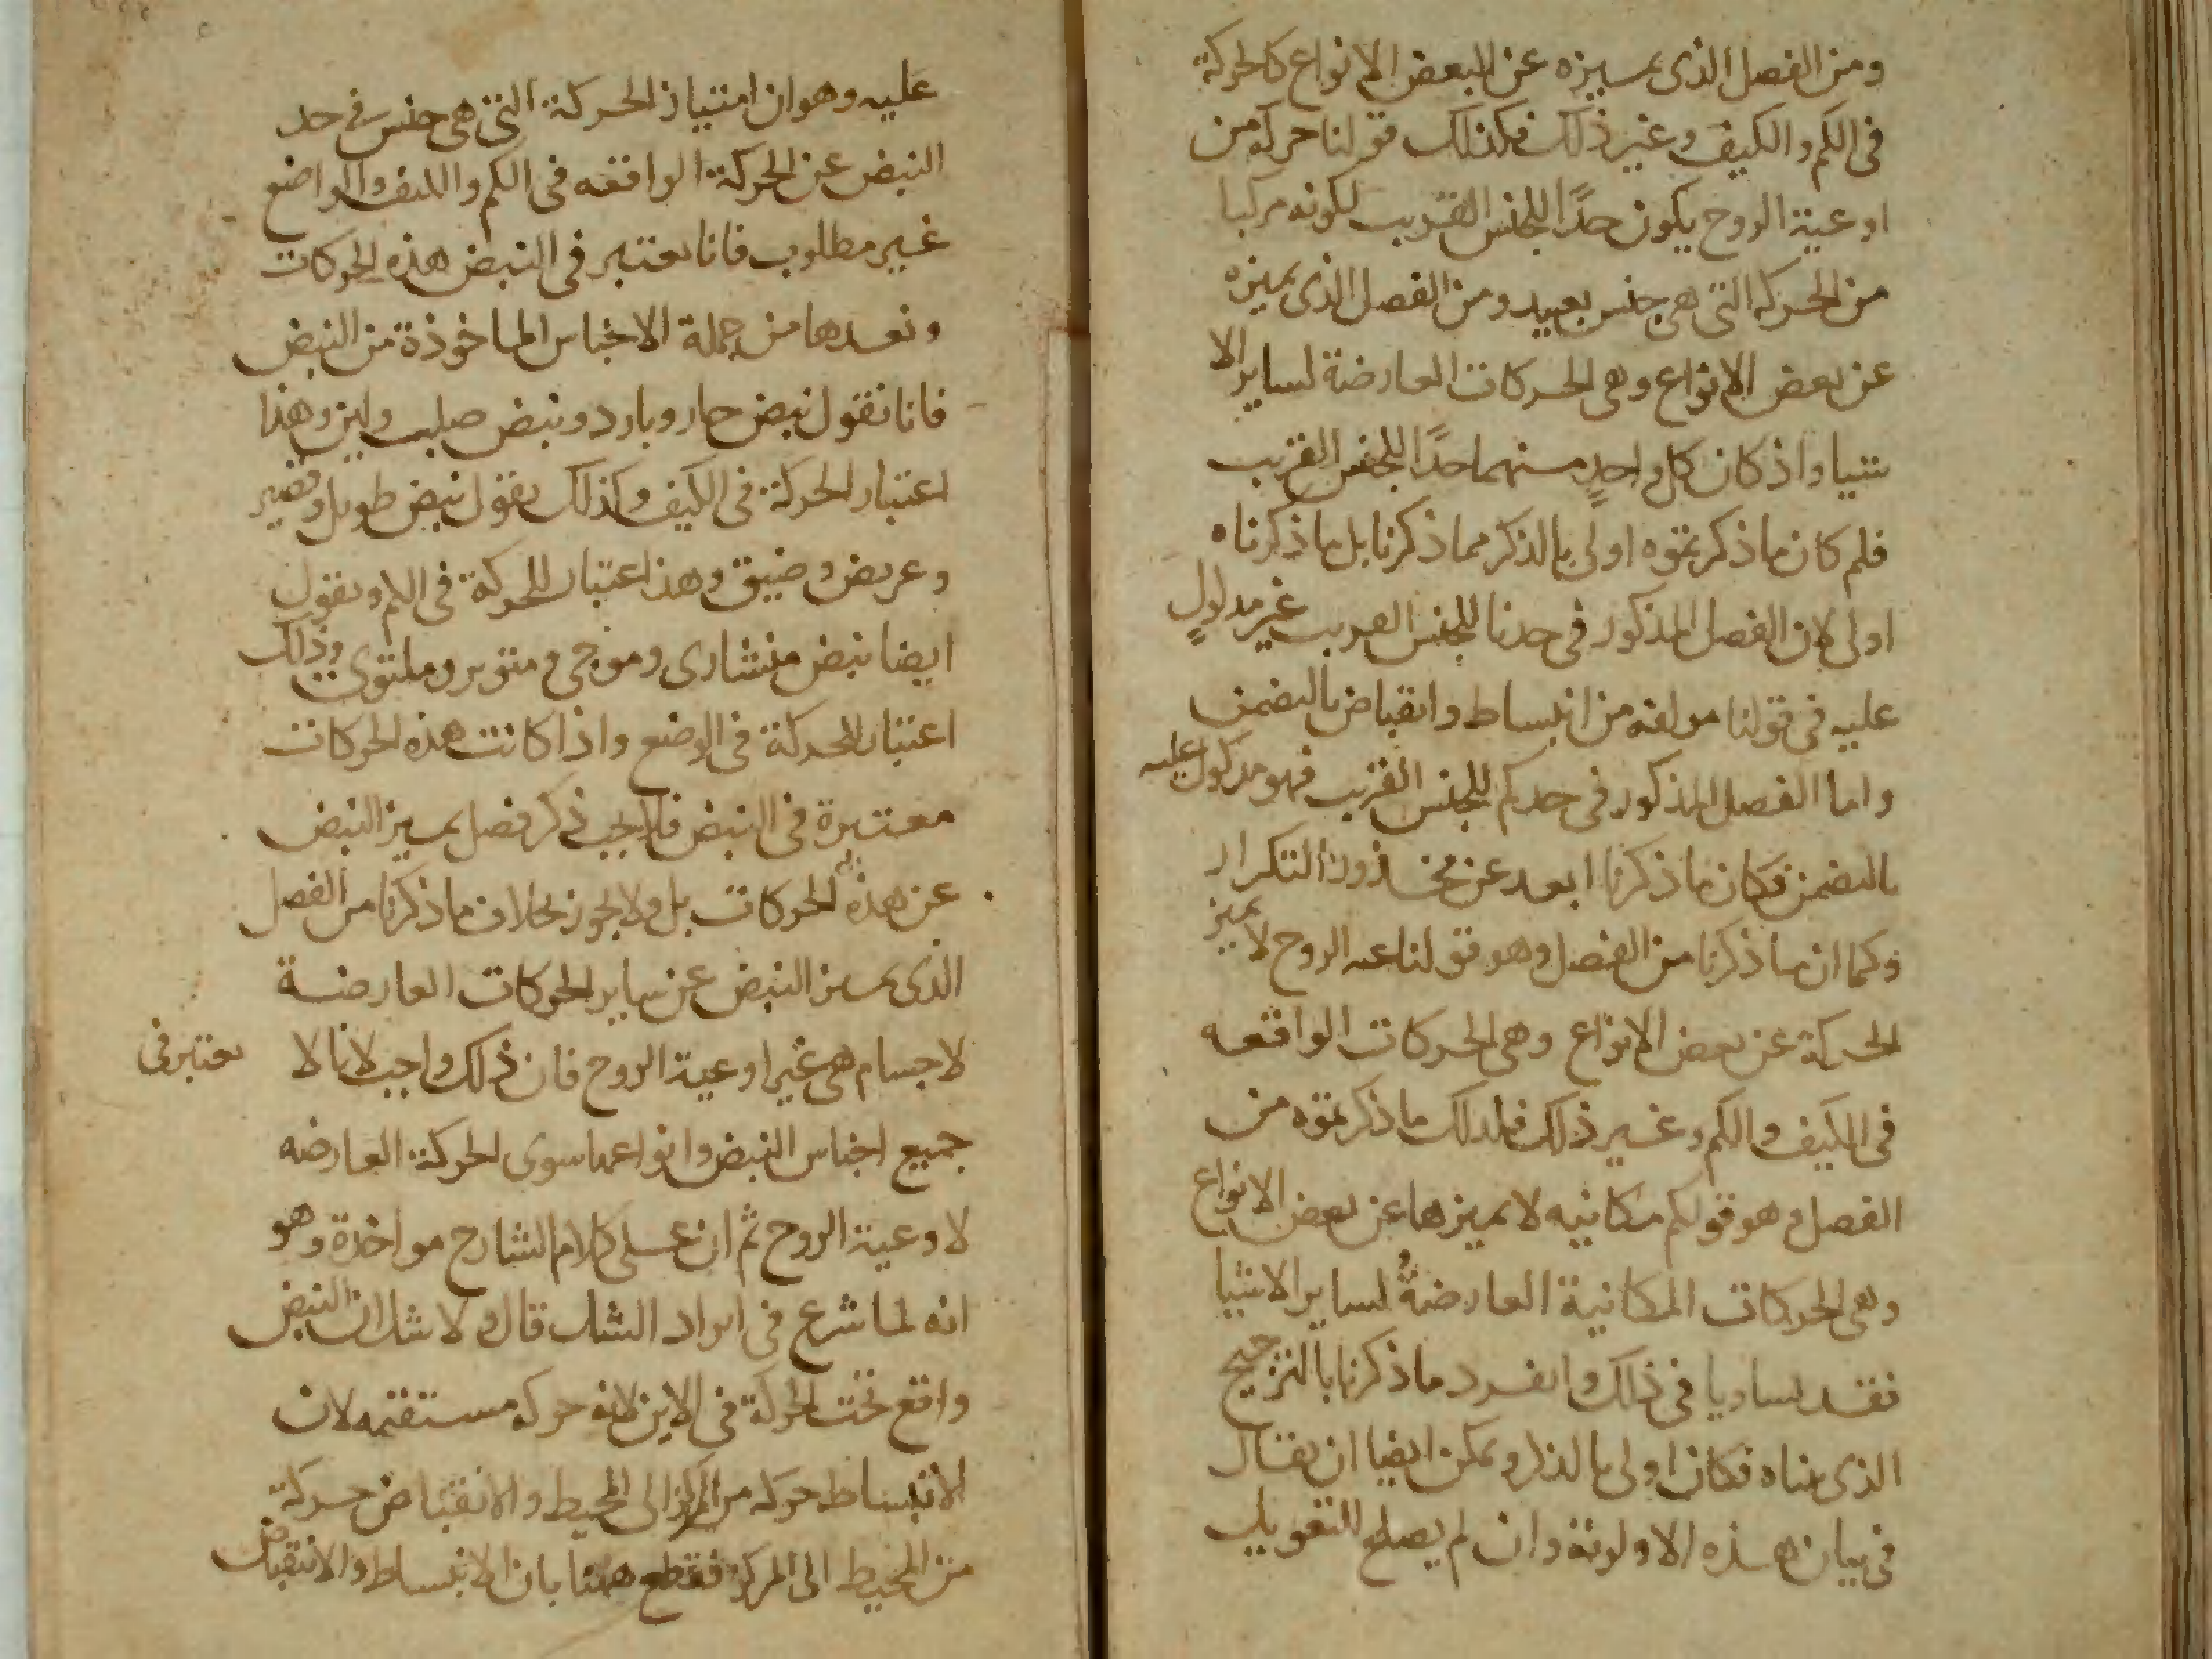 ومن الفصل الذى يميزه عن البعض الانواع كالحركة
فى الكم والكيف وغير ذلك فكذلك قولنا حركه من
اوعية الروح يكون حدًا للجنس القريب لكونه مركبا
من الحركه التى هى جنس بعيد ومن الفصل الذى يميزه
عن بعض الانواع وهى الحركات العارضة لساير الا
شيا واذ كان كل واحدٍ منهما حدًا للجنس القريب
فلم كان ما ذكرتموه اولى بالذكر مما ذكرنا بل ما ذكرناه
اولى لان الفصل المذكور فى حدنا للجنس القريب غير مدلولٍ
عليه فى قولنا مولفه من انبساط وانقباض بالتضمن
واما الفصل المذكور فى حدكم للجنس القريب فهو مدلول عليه
بالتضمن فكان ما ذكرنا ابعد عن محذور التكرار
وكما ان ما ذكرنا من الفصل وهو قولنا الروح لا يميز
الحركة عن بعض الانواع وهى الحركات الواقعه
فى الكيف والكم وغير ذلك فلذلك ما ذكرتموه من
الفصل وهو قولكم مكانيه لا يميزها عن بعض الانواع
وهى الحركات المكانية العارضةُ لساير الاشيا
فقد تساويا فى ذلك وانفرد ما ذكرنا بالترجيح
الذى بيناه فكان اولى بالذكر ويمكن ايضا ان يقال
فى بيان هذه الاولوية وان لم يصلح للتعويل
عليه وهو ان امتياز الحركة التى هى جنس فى حد
النبض عن الحركة الواقعه فى الكم والكيف والواضع
غير مطلوب فانا نعتبر فى النبض هذه الحركات
ونعدها من جملة الاجناس الماخوذة من النبض
فانا نقول نبض حار وبارد ونبض صلب ولين وهذا
اعتبار الحركة فى الكيف وكذلك نقول نبض طويل وقصير
وعريض وضيق وهذا اعتبار للحركة فى الكم ونقول
ايضا نبض منشارى وموجى ومتوتر وملتوى وذلك
اعتبار للحركة فى الوضع واذا كانت هذه الحركات
معتبرة فى النبض فلا يجب ذكر فصل يميز النبض
عن هذه الحركات بل ولا يجوز بخلاف ما ذكرنا من الفصل
الذى يميز النبض عن ساير الحركات العارضة
لاجسام هى غير اوعية الروح فان ذلك واجب لانا لا نعتبر فى
جميع اجناس النبض وانواعها سوى الحركة العارضه
لاوعية الروح ثم ان على كلام الشارح مواخذة وهو
انه لما شرع فى ايراد الشك قال ولا شك ان النبض
واقع تحت الحركة فى الاين لانه حركه مستقيمه لان
الانبساط حركه من المركز الى المحيط والانقباض حركة
من المحيط الى المركز فقطع ههنا بان الانبساط والانقباض